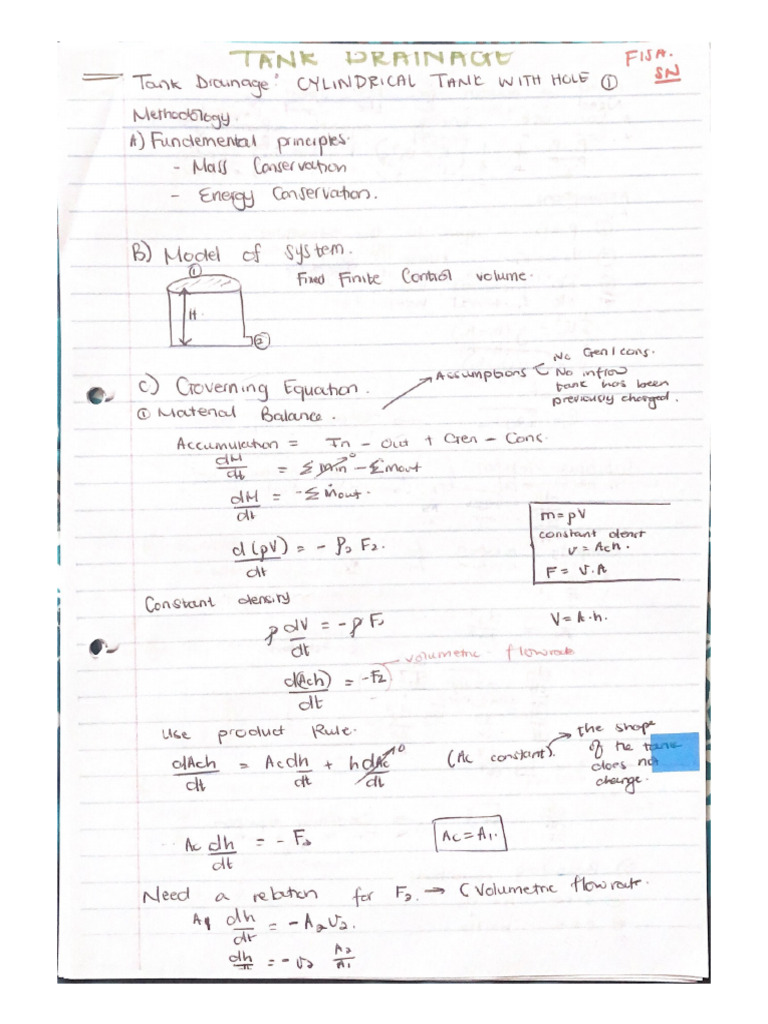 TANK DRAINAGE
FISA.
SN
Tank Drainage: CYLINDRICAL TANK WITH HOLE ①
Methodology.
A) Fundemental principles.
- Mass Conservation
- Energy Conservation.
B) Model of system.
①
Fixed Finite Control volume.
H.
②
C) Governing Equation.
Assumptions
No Gen/cons.
No inflow
tank has been
previously charged.
① Material Balance.
Accumulation = In - Out + Gen - Cons.
dM/dt = Σṁin⁰ - Σṁout
dM/dt = -Σṁout.
m=ρV
constant
V = Ach.
F = v.A
d(ρV)/dt = - ρ₂ F₂.
Constant density
ρ dV/dt = -ρ F₂
V= A.h.
volumetric flowrate
d(Ach)/dt = -F₂
Use product Rule.
dAch/dt = Ac dh/dt + h dAc/dt ⁰
(Ac constant).
the shape
of the tank
does not
change.
Ac dh/dt = - F₂
Ac = A₁.
Need a relation for F₂ → (Volumetric flowrate.
A₁ dh/dt = -A₂v₂.
dh/dt = -v₂ A₂/A₁